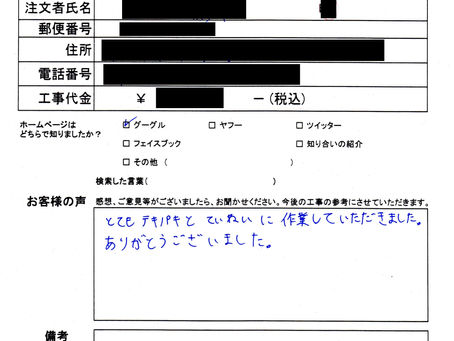 注文者氏名
郵便番号
住所
電話番号
工事代金 ¥ ー(税込)
ホームページは
どちらで知りましたか?
☑ グーグル □ ヤフー □ ツイッター
□ フェイスブック □ 知り合いの紹介
□ その他 ( )
検索した言葉( )
お客様の声 感想、ご意見等がございましたら、お聞かせください。今後の工事の参考にさせていただきます。
とても テキパキと ていねいに 作業していただきました。
ありがとうございました。
備考